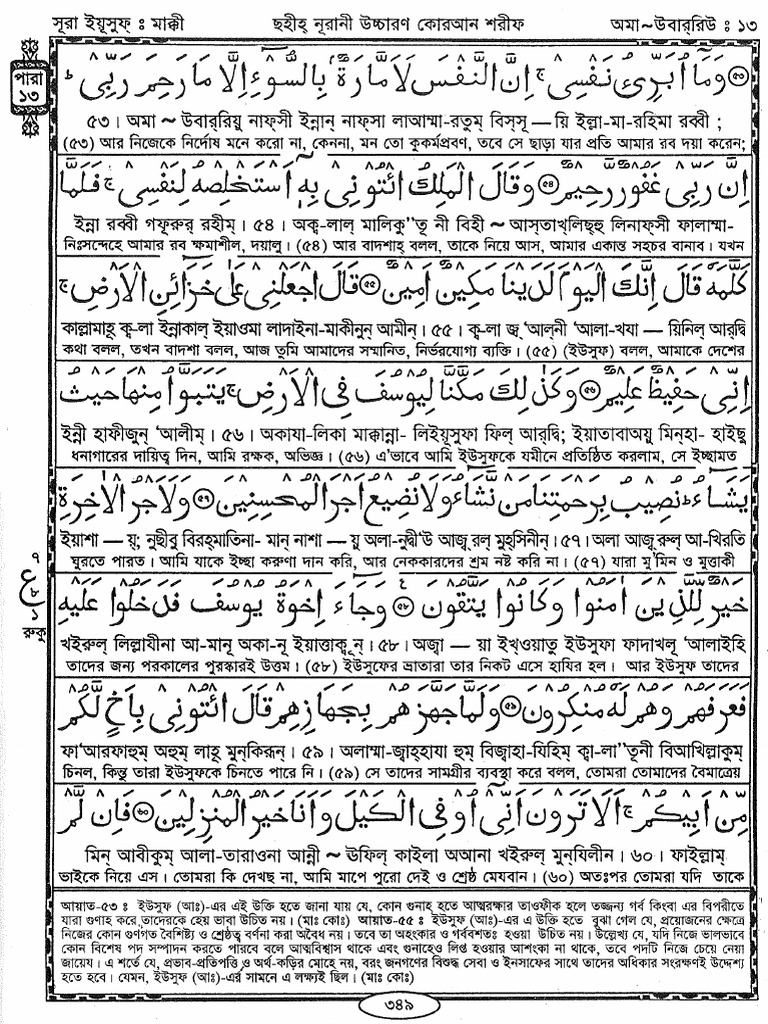 সূরা ইয়ূসুফ্ : মাক্কী
ছহীহ্ নূরানী উচ্চারণ কোরআন শরীফ
অমা~উবার্‌রিউ : ১৩
পারা
১৩
۝৫৩ وَمَآ اُبَرِّئُ نَفْسِيْ ۚ اِنَّ النَّفْسَ لَاَمَّارَةٌۢ بِالسُّوْٓءِ اِلَّا مَا رَحِمَ رَبِّيْ ؕ
৫৩। অমা ~ উবার্‌রিয়ু নাফ্‌সী ইন্নান্ নাফ্‌সা লাআম্মা-রতুম্ বিস্‌সূ — য়ি ইল্লা-মা-রহিমা রব্বী ;
(৫৩) আর নিজেকে নির্দোষ মনে করো না, কেননা, মন তো কুকর্মপ্রবণ, তবে সে ছাড়া যার প্রতি আমার রব দয়া করেন;
اِنَّ رَبِّيْ غَفُوْرٌ رَّحِيْمٌ ۝৫৪ وَقَالَ الْمَلِكُ ائْتُوْنِيْ بِهٖٓ اَسْتَخْلِصْهُ لِنَفْسِيْ ۚ فَلَمَّا
ইন্না রব্বী গফূরুর্ রহীম্। ৫৪। অক্ব-লাল্ মালিকু"তূ নী বিহী ~ আস্‌তাখ্‌লিছ্‌হু লিনাফ্‌সী ফালাম্মা-
নিঃসন্দেহে আমার রব ক্ষমাশীল, দয়ালু। (৫৪) আর বাদশাহ্ বলল, তাকে নিয়ে আস, আমার একান্ত সহচর বানাব। যখন
كَلَّمَهٗ قَالَ اِنَّكَ الْيَوْمَ لَدَيْنَا مَكِيْنٌ اَمِيْنٌ ۝৫৫ قَالَ اجْعَلْنِيْ عَلٰى خَزَآئِنِ الْاَرْضِ ۚ
কাল্লামাহূ ক্ব-লা ইন্নাকাল্ ইয়াওমা লাদাইনা-মাকীনুন্ আমীন্। ৫৫। ক্ব-লা জ্ব্‌'আল্‌নী 'আলা-খযা — য়িনিল্ আর্‌দ্বি
কথা বলল, তখন বাদশা বলল, আজ তুমি আমাদের সম্মানিত, নির্ভরযোগ্য ব্যক্তি। (৫৫) (ইউসুফ) বলল, আমাকে দেশের
اِنِّيْ حَفِيْظٌ عَلِيْمٌ ۝৫৬ وَكَذٰلِكَ مَكَّنَّا لِيُوْسُفَ فِي الْاَرْضِ ۚ يَتَبَوَّاُ مِنْهَا حَيْثُ
ইন্নী হাফীজুন্ 'আলীম্। ৫৬। অকাযা-লিকা মাক্কান্না- লিইয়ূসুফা ফিল্ আর্‌দ্বি; ইয়াতাবাঅয়ু মিন্‌হা- হাইছু
ধনাগারের দায়িত্ব দিন, আমি রক্ষক, অভিজ্ঞ। (৫৬) এ'ভাবে আমি ইউসুফকে যমীনে প্রতিষ্ঠিত করলাম, সে ইচ্ছামত
يَشَآءُ ؕ نُصِيْبُ بِرَحْمَتِنَا مَنْ نَّشَآءُ وَلَا نُضِيْعُ اَجْرَ الْمُحْسِنِيْنَ ۝৫৭ وَلَاَجْرُ الْاٰخِرَةِ
ইয়াশা — য়্; নুছীবু বিরহ্‌মাতিনা- মান্ নাশা — য়ু অলা-নুদ্বী'উ আজ্ব্‌রল্ মুহ্‌সিনীন্। ৫৭। অলা আজ্ব্‌রুল্ আ-খিরতি
ঘুরতে পারত। আমি যাকে ইচ্ছা করুণা দান করি, আর নেককারদের শ্রম নষ্ট করি না। (৫৭) যারা মু'মিন ও মুত্তাকী
৭
ع
৮
১
রুকু
خَيْرٌ لِّلَّذِيْنَ اٰمَنُوْا وَكَانُوْا يَتَّقُوْنَ ۝৫৮ وَجَآءَ اِخْوَةُ يُوْسُفَ فَدَخَلُوْا عَلَيْهِ
খইরুল্ লিল্লাযীনা আ-মানূ অকা-নূ ইয়াত্তাক্বূন্। ৫৮। অজ্বা — য়া ইখ্‌ওয়াতু ইয়ূসুফা ফাদাখলূ 'আলাইহি
তাদের জন্য পরকালের পুরস্কারই উত্তম। (৫৮) ইউসুফের ভ্রাতারা তার নিকট এসে হাযির হল। আর ইউসুফ তাদের
فَعَرَفَهُمْ وَهُمْ لَهٗ مُنْكِرُوْنَ ۝৫৯ وَلَمَّا جَهَّزَهُمْ بِجَهَازِهِمْ قَالَ ائْتُوْنِيْ بِاَخٍ لَّكُمْ
ফা'আরফাহুম্ অহুম্ লাহূ মুন্‌কিরূন্। ৫৯। অলাম্মা-জ্বাহ্‌হাযা হুম্ বিজ্বাহা-যিহিম্ ক্বা-লা"তূনী বিআখিল্লাকুম্
চিনল, কিন্তু তারা ইউসুফকে চিনতে পারে নি। (৫৯) সে তাদের সামগ্রীর ব্যবস্থা করে বলল, তোমরা তোমাদের বৈমাত্রেয়
مِّنْ اَبِيْكُمْ ۚ اَلَا تَرَوْنَ اَنِّيْٓ اُوْفِي الْكَيْلَ وَاَنَا خَيْرُ الْمُنْزِلِيْنَ ۝৬০ فَاِنْ لَّمْ
মিন্ আবীকুম্ আলা-তারাওনা আন্নী ~ ঊফিল্ কাইলা অআনা খইরুল্ মুন্‌যিলীন। ৬০। ফাইল্লাম্
ভাইকে নিয়ে এস। তোমরা কি দেখছ না, আমি মাপে পুরো দেই ও শ্রেষ্ঠ মেযবান। (৬০) অতঃপর তোমরা যদি তাকে
আয়াত-৫৩ : ইউসুফ (আঃ)-এর এই উক্তি হতে জানা যায় যে, কোন গুনাহ্ হতে আত্মরক্ষার তাওফীক হলে তজ্জন্য গর্ব কিংবা এর বিপরীতে
যারা গুণাহ করে,তাদেরকে হেয় ভাবা উচিত নয়। (মাঃ কোঃ) আয়াত-৫৫ : ইউসুফ (আঃ)-এর এ উক্তি হতে বুঝা গেল যে, প্রয়োজনের ক্ষেত্রে
নিজের কোন গুণগত বৈশিষ্ট্য ও শ্রেষ্ঠত্ব বর্ণনা করা অবৈধ নয়। তবে তা অহংকার ও গর্ববশতঃ হওয়া উচিত নয়। উল্লেখ্য যে, যদি নিজে ভালভাবে
কোন বিশেষ পদ সম্পাদন করতে পারবে বলে আত্মবিশ্বাস থাকে এবং গুনাহেও লিপ্ত হওয়ার আশংকা না থাকে, তবে পদটি নিজে চেয়ে নেয়া
জায়েয। এ শর্তে যে, প্রভাব-প্রতিপত্তি ও অর্থ-কড়ির মোহে নয়, বরং জনগণের বিশুদ্ধ সেবা ও ইনসাফের সাথে তাদের অধিকার সংরক্ষণই উদ্দেশ্য
হতে হবে। যেমন, ইউসুফ (আঃ)-এর সামনে এ লক্ষ্যই ছিল। (মাঃ কোঃ)
৩৪৯